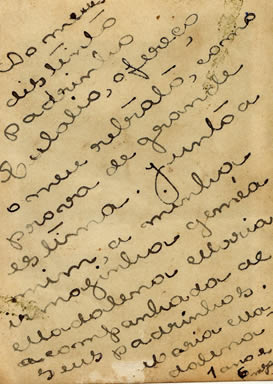 Ao meu
distinto
Padrinho
Eulalio, ofereço
o meu retrato, como
prova de grande
estima. Junto a
mim, a minha
irmãzinha gemea
Madalena Maria
acompanhada de
seus padrinhos.
Maria Ma-
dalena
1 ano e
6 m